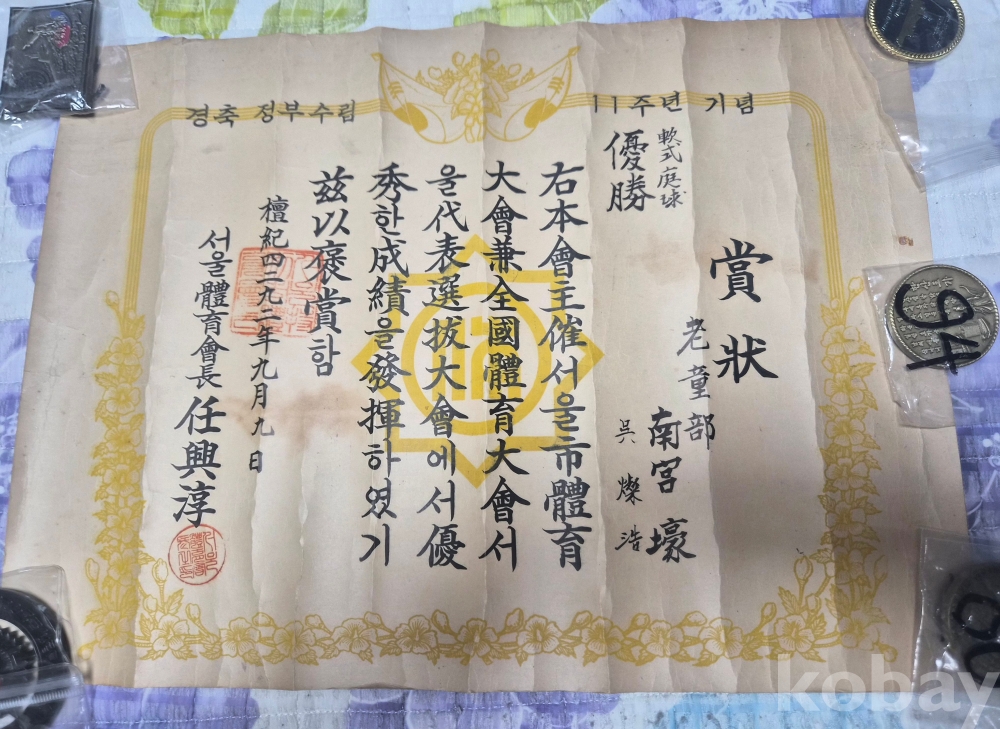 경축 정부수립 11주년 기념
賞狀
老童部
南宮 壕
吳 燦浩
軟式庭球
優勝
右本會主催서울市體育
大會兼全國體育大會서
울代表選拔大會에서優
秀한成績을發揮하였기
玆以褒賞함
檀紀四二九二年九月九日
서울體育會長 任興淳
94
kobay